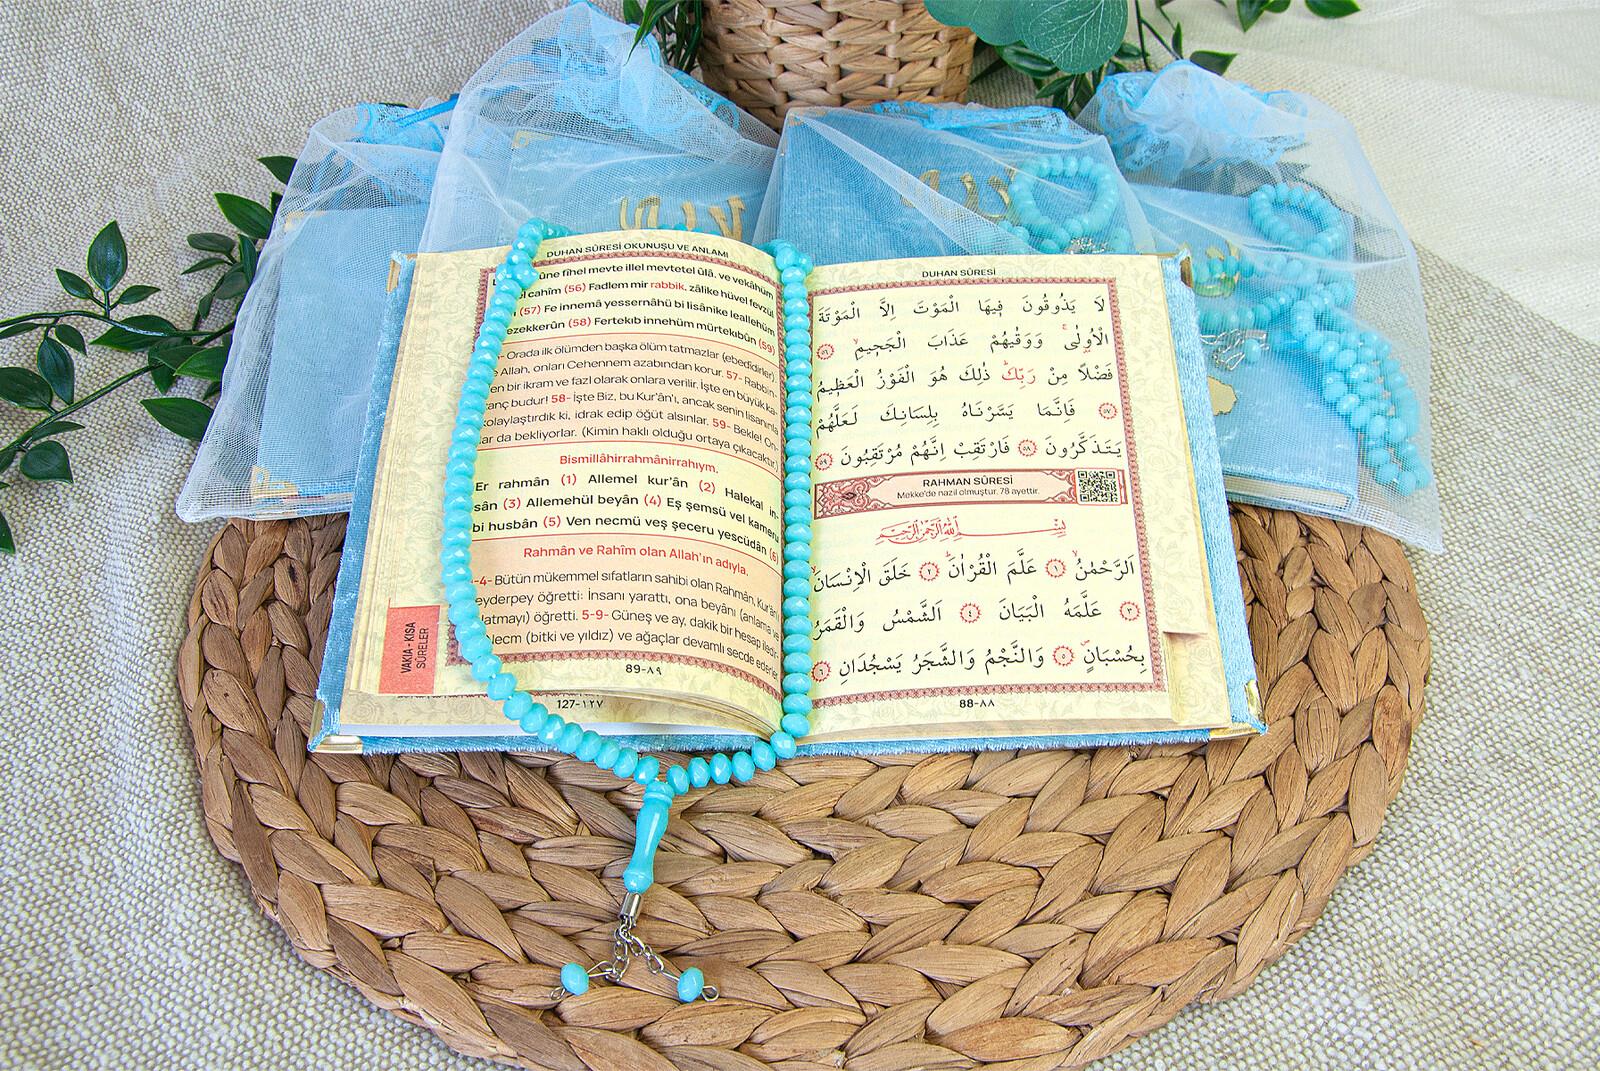 DUHAN SÛRESİ OKUNUŞU VE ANLAMI
ûne fîhel mevte illel mevtetel ûlâ, ve vekâhüm
cahîm (56) Fadlem mir rabbik, zâlike hüvel fevzül
(57) Fe innemâ yessernâhü bi lisânike leallehüm
ezekkerûn (58) Fertekıb innehüm mürtekıbûn (59)
Orada ilk ölümden başka ölüm tatmazlar (ebedidirler).
Allah, onları Cehennem azabından korur. 57- Rabbin-
en bir ikram ve fazl olarak onlara verilir. İşte en büyük ka-
anç budur! 58- İşte Biz, bu Kur'ân'ı, ancak senin lisanınla
kolaylaştırdık ki, idrak edip öğüt alsınlar. 59- Bekle! On-
lar da bekliyorlar. (Kimin haklı olduğu ortaya çıkacaktır.)
Bismillâhirrahmânirrahıym.
Er rahmân (1) Allemel kur'ân (2) Halekal in-
sân (3) Allemehül beyân (4) Eş şemsü vel kameru
bi husbân (5) Ven necmü veş şeceru yescüdân (6)
Rahmân ve Rahîm olan Allah'ın adıyla.
-4- Bütün mükemmel sıfatların sahibi olan Rahmân, Kur'ân
eyderpey öğretti: İnsanı yarattı, ona beyânı (anlama ve
latmayı) öğretti. 5-9- Güneş ve ay, dakik bir hesap iledir.
Necm (bitki ve yıldız) ve ağaçlar devamlı secde ederler.
VAKIA - KISA
SÛRELER
89-٨٩
127-١٢٧
DUHAN SÛRESİ
لَا يَذُوقُونَ فِيهَا الْمَوْتَ اِلَّا الْمَوْتَةَ
الْاُولٰىۚ وَوَقٰيهُمْ عَذَابَ الْجَح۪يمِۙ ٥٦
فَضْلًا مِنْ رَبِّكَۜ ذٰلِكَ هُوَ الْفَوْزُ الْعَظ۪يمُ
٥٧ فَاِنَّمَا يَسَّرْنَاهُ بِلِسَانِكَ لَعَلَّهُمْ
يَتَذَكَّرُونَ ٥٨ فَارْتَقِبْ اِنَّهُمْ مُرْتَقِبُونَ ٥٩
RAHMAN SÛRESİ
Mekke'de nazil olmuştur. 78 ayettir.
بِسْمِ اللّٰهِ الرَّحْمٰنِ الرَّح۪يمِ
اَلرَّحْمٰنُۙ ١ عَلَّمَ الْقُرْاٰنَۜ ٢ خَلَقَ الْاِنْسَانَۙ
٣ عَلَّمَهُ الْبَيَانَ ٤ اَلشَّمْسُ وَالْقَمَرُ
بِحُسْبَانٍۖ ٥ وَالنَّجْمُ وَالشَّجَرُ يَسْجُدَانِ ٦
88-٨٨